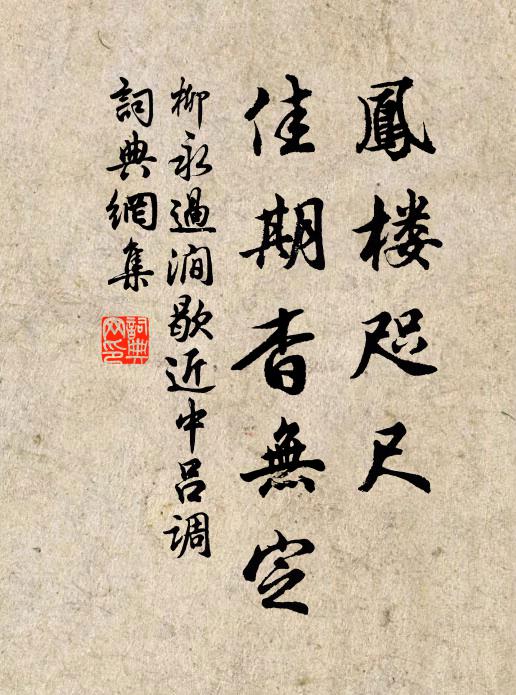 鳳楼咫尺
佳期杳無定
柳永過澗歇近中呂調
詞典網集
詞典網印